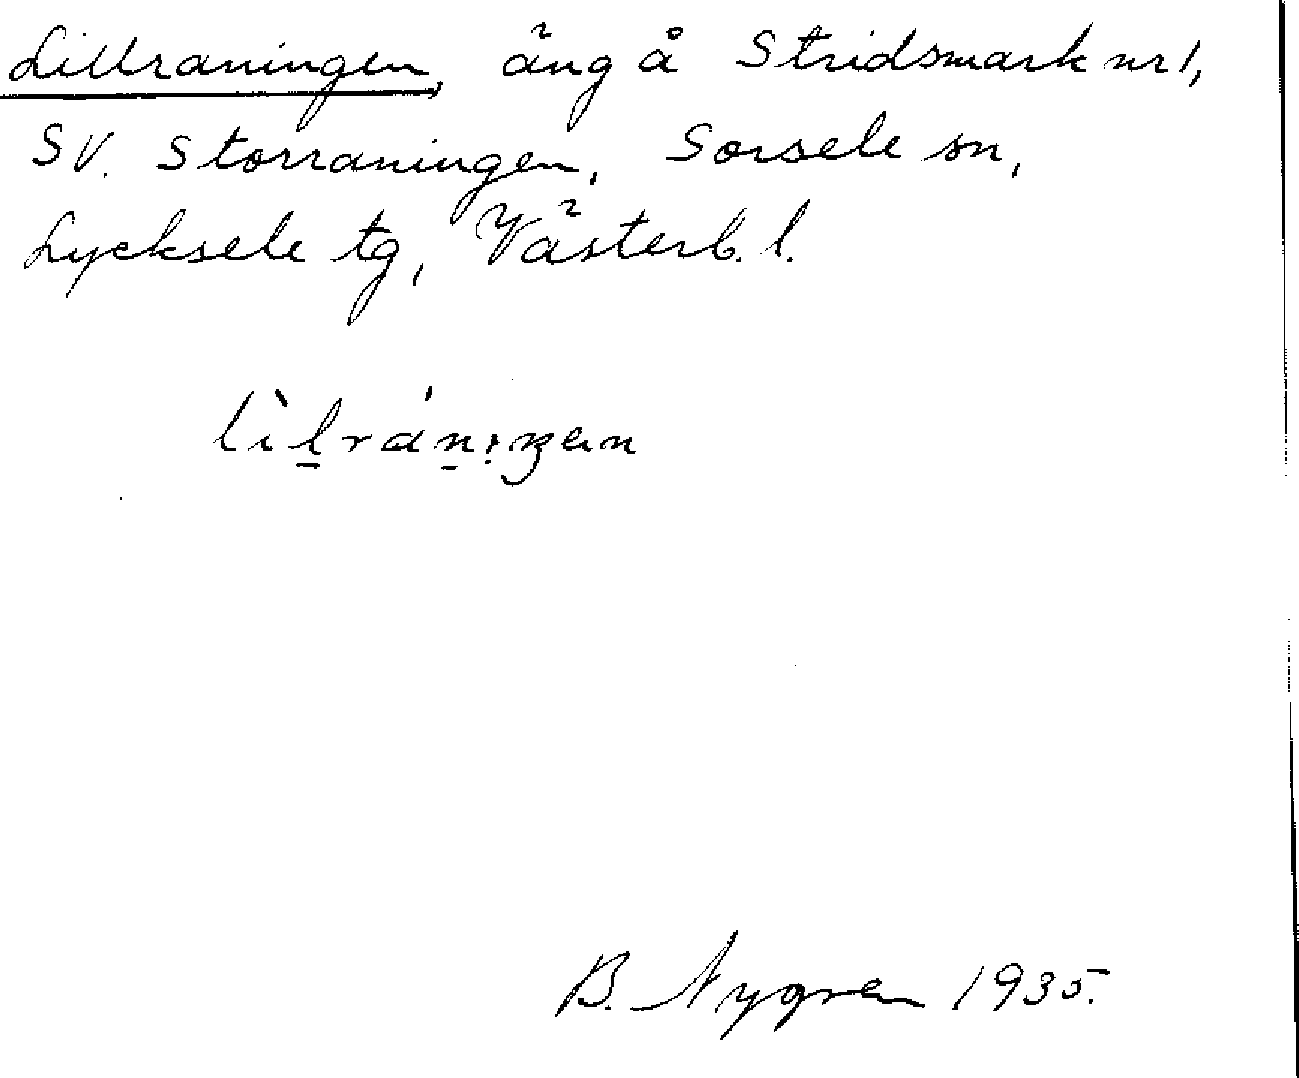 Lillraningen, äng å Stridsmark nr 1,
SV. Storraningen, Sorsele sn,
Lycksele tg, Västerb. l.
lìl̠rán̠:ꞑen
B. Nygren 1935.